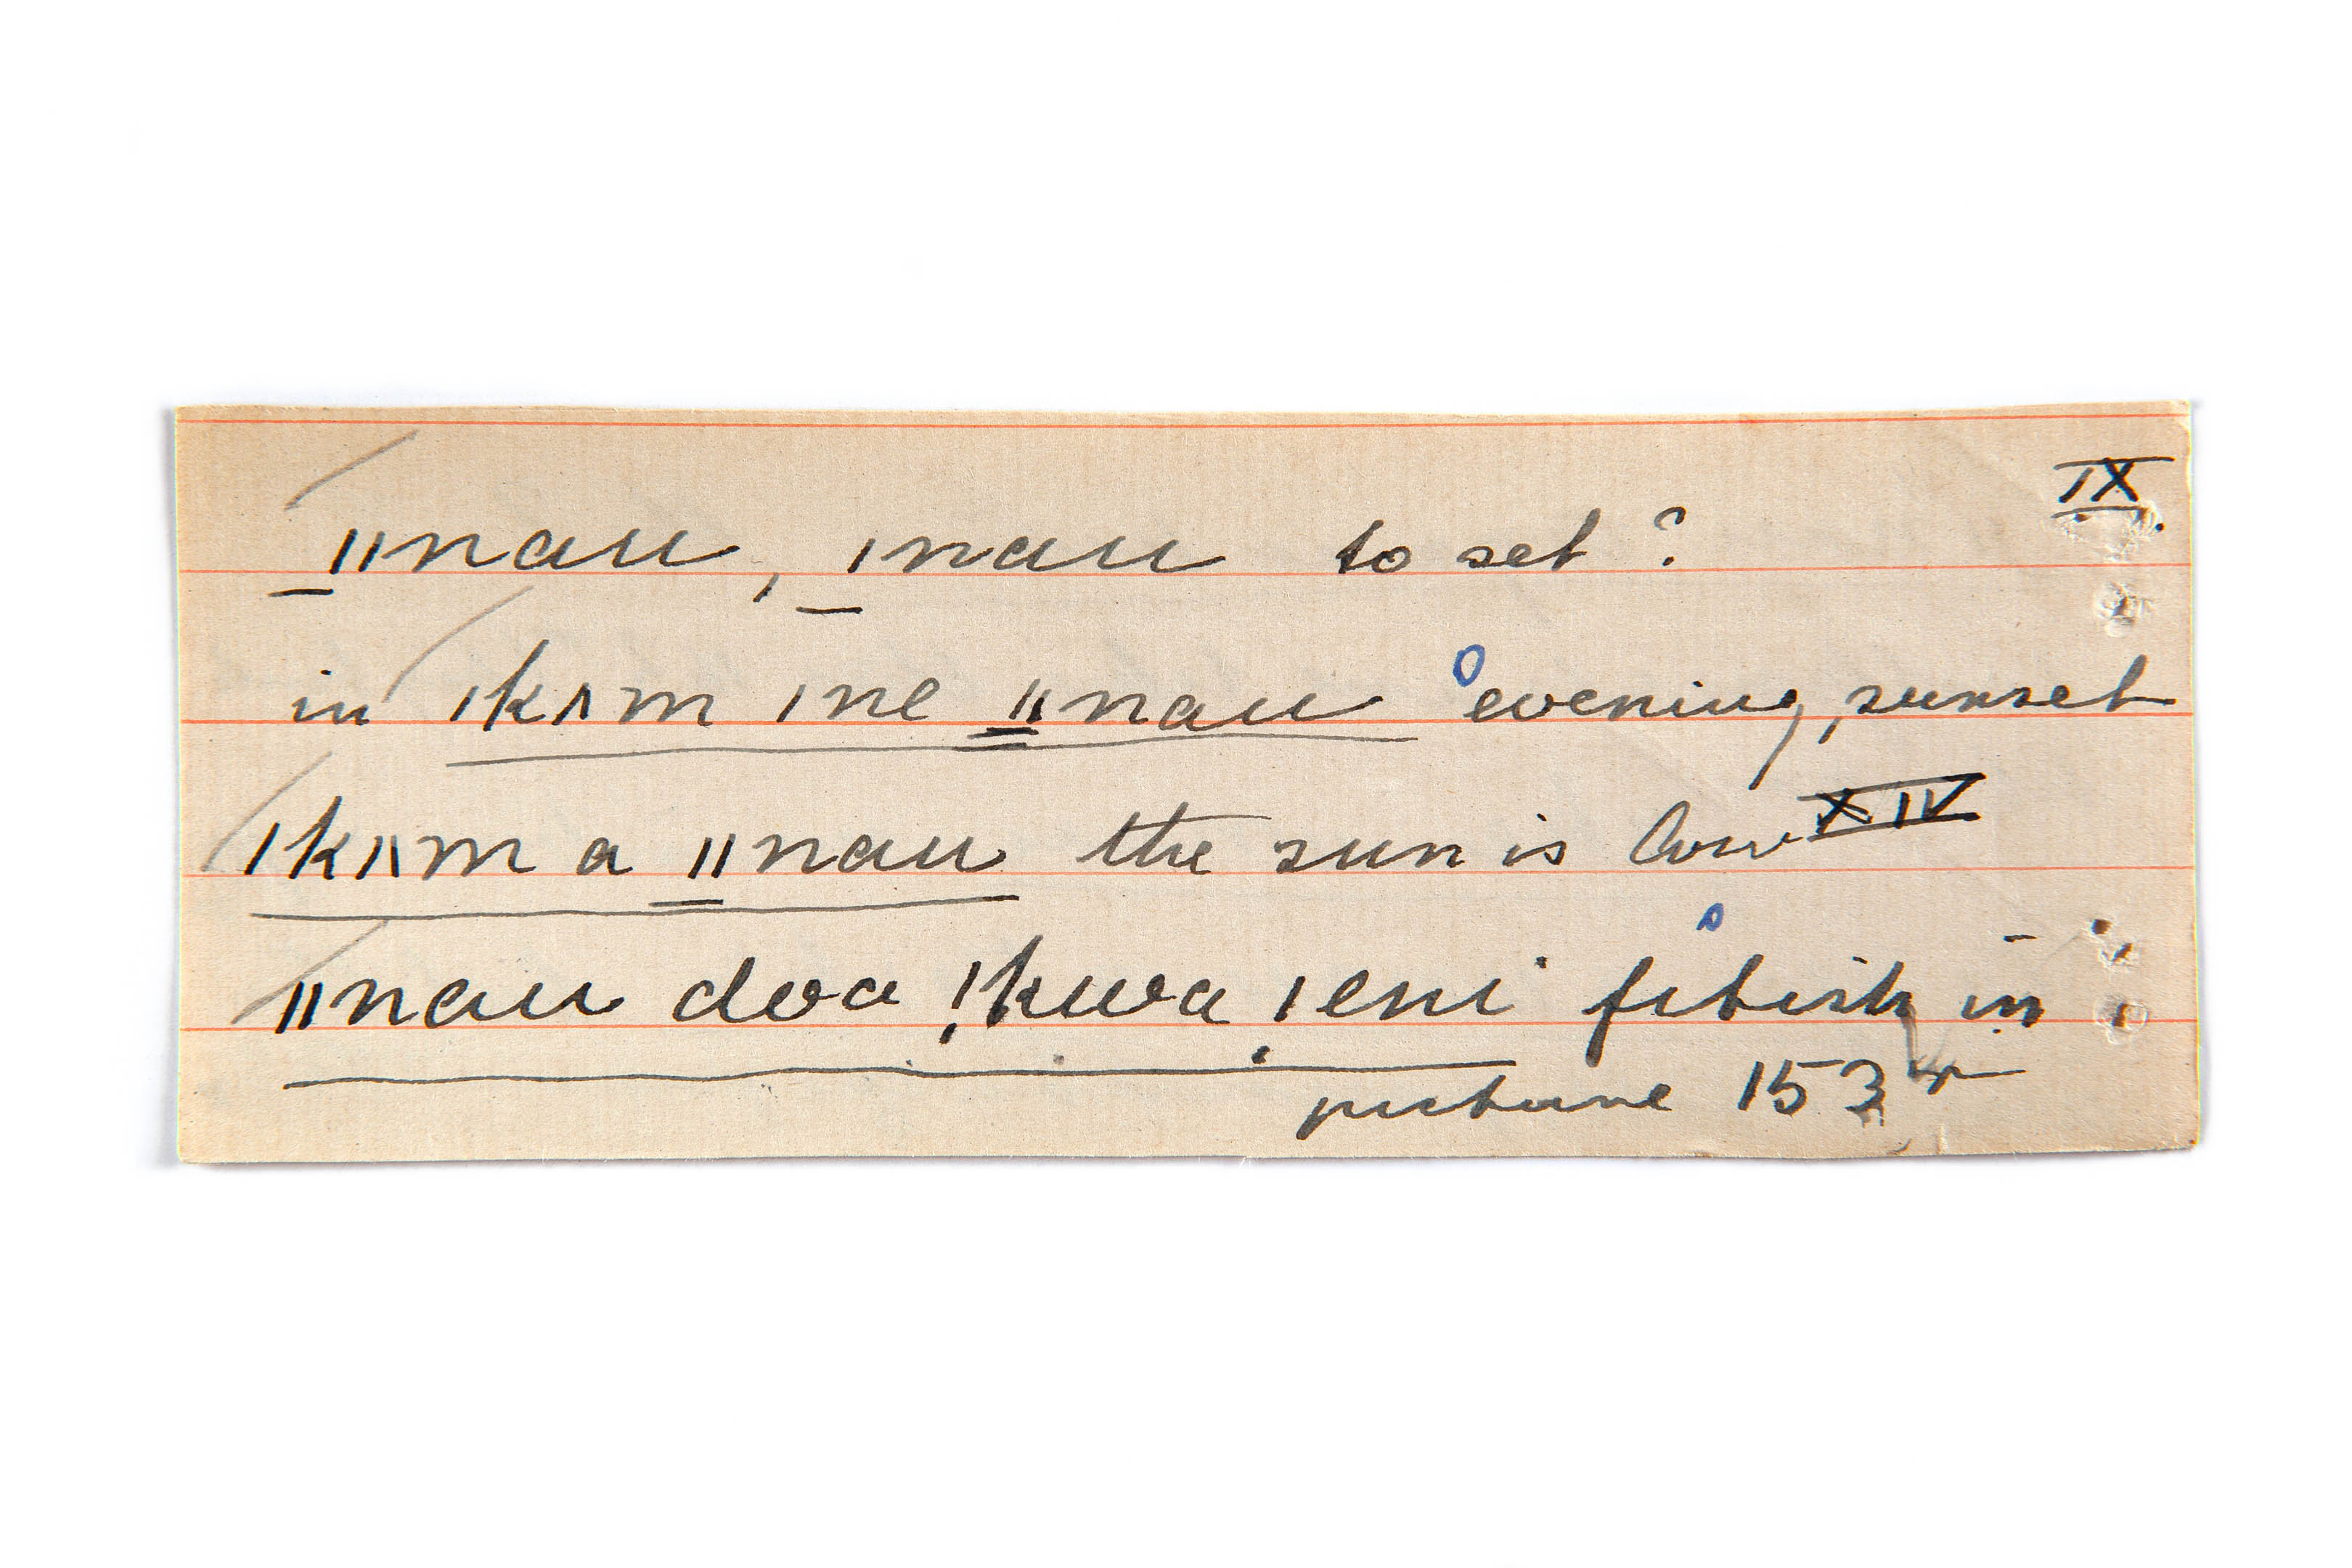 IX
ǁnau, ǀnau to set ?
in ǀkʌm ǀne ǁnau evening, sunset
ǀkʌm a ǁnau the sun is low XIV
ǁnau doa !kwa ǀeni fetish in
picture 153